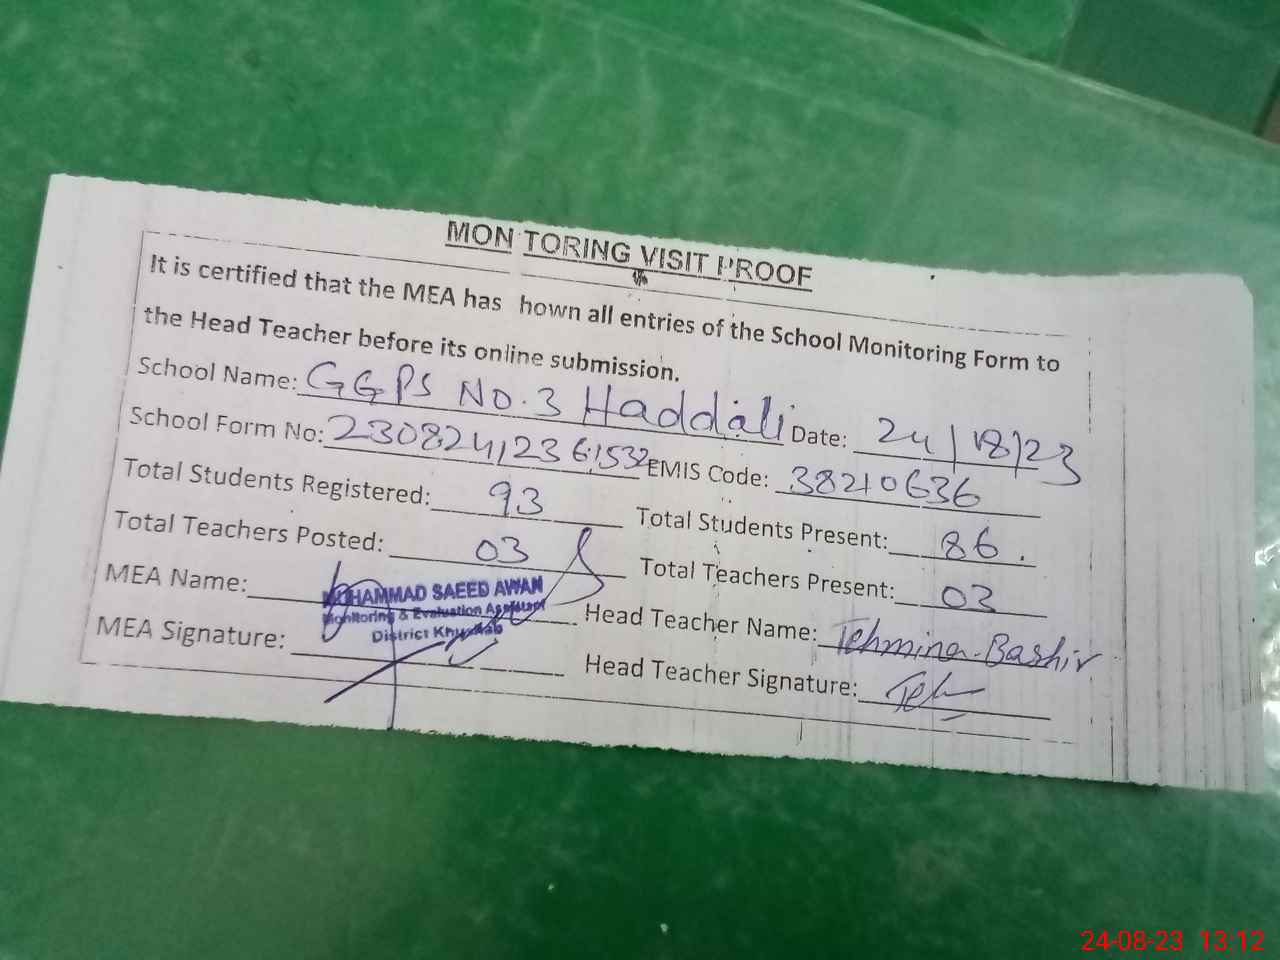 MONITORING VISIT PROOF
It is certified that the MEA has hown all entries of the School Monitoring Form to
the Head Teacher before its online submission.
School Name: GGPS No.3 Haddali Date: 24/8/23
School Form No: 23082412361532 EMIS Code: 38210636
Total Students Registered: 93 Total Students Present: 86.
Total Teachers Posted: 03 Total Teachers Present: 03
MEA Name: MOHAMMAD SAEED AWAN Head Teacher Name: Tehmina Bashir
Monitoring & Evaluation Assistant
District Khushab
MEA Signature: Head Teacher Signature: Teh
24-08-23 13:12